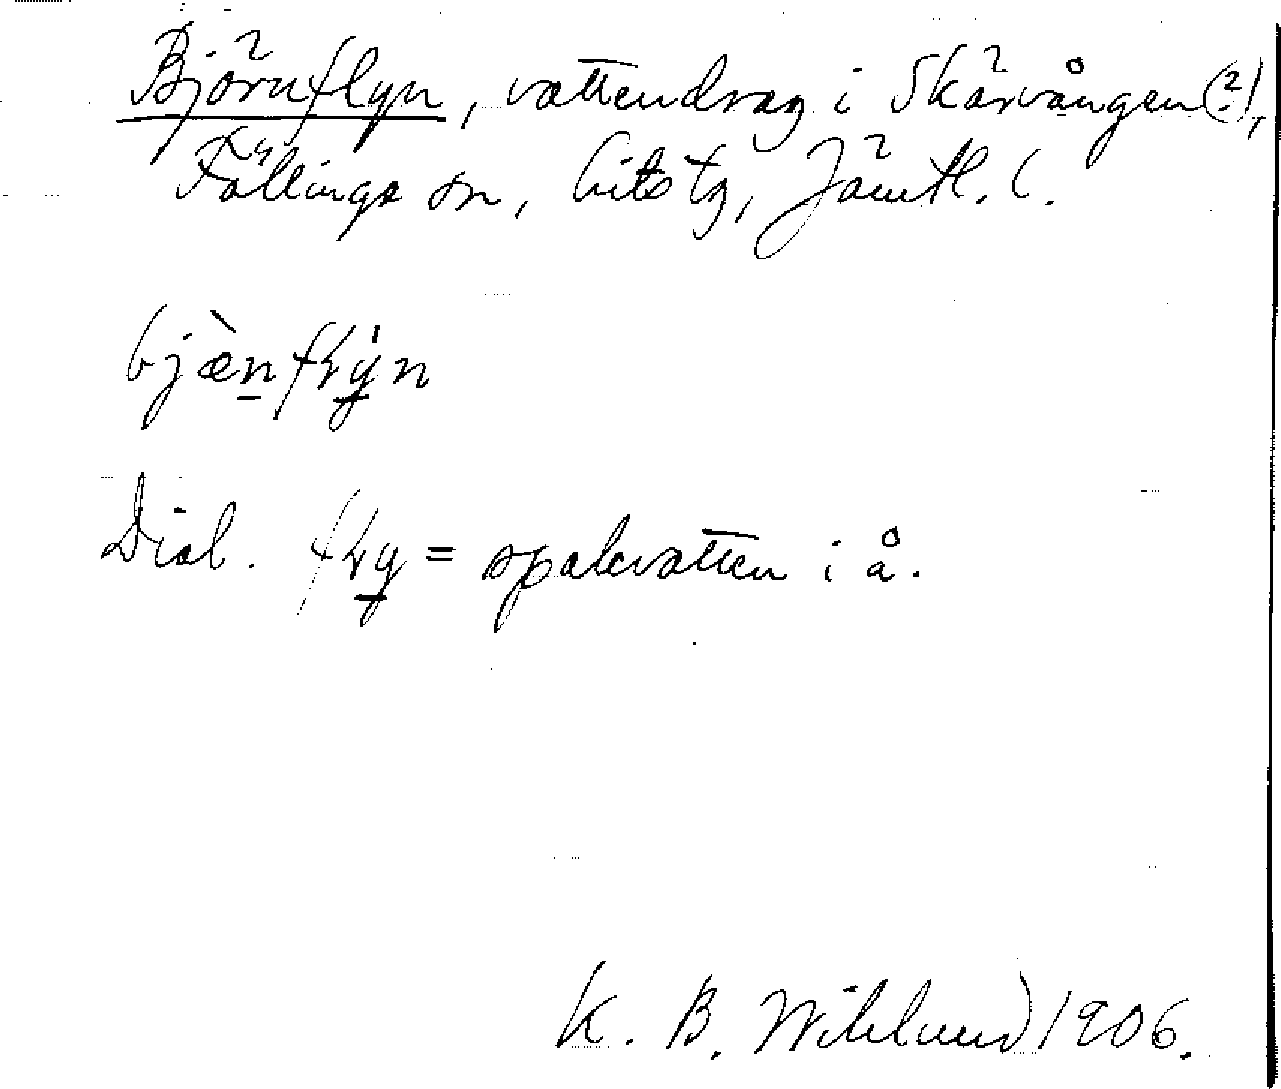 Björnflyn, vattendrag i Skärvången (2),
Föllinge sn, Lits tg, Jämtl. l.
bjæ̀n̠fɽy̠̍n
Dial. fɽy̠ = spakvatten i å.
K. B. Wiklund 1906.